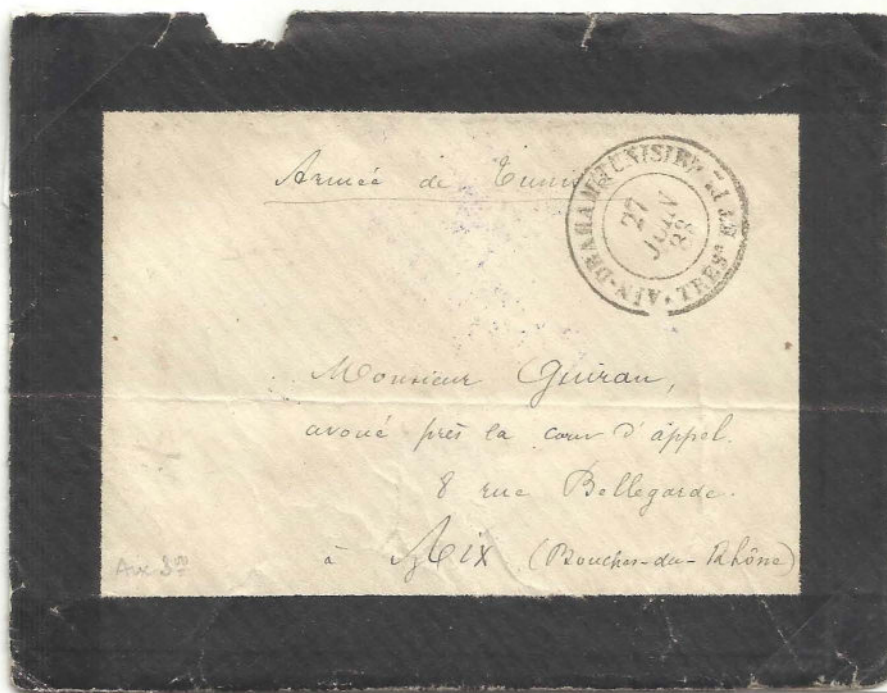 Armée de Tunisie
TRES. ET P. AIN-DRAHAM TUNISIE
27
JUIN
Monsieur Guiran,
avoué près la cour d'appel.
8 rue Bellegarde.
à Aix (Bouches-du-Rhône)
Aix